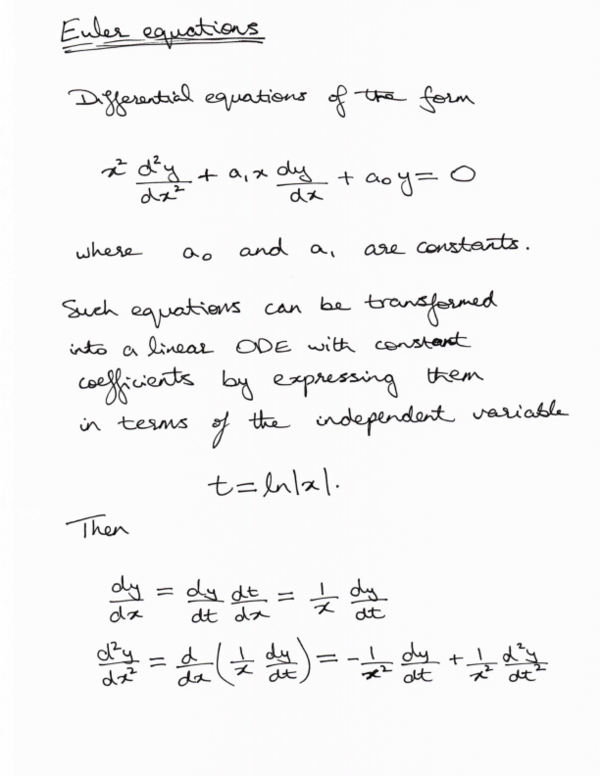 Euler equations
Differential equations of the form
x² d²y/dx² + a₁x dy/dx + a₀y = 0
where a₀ and a₁ are constants.
Such equations can be transformed
into a linear ODE with constant
coefficients by expressing them
in terms of the independent variable
t = ln|x|.
Then
dy/dx = dy/dt dt/dx = 1/x dy/dt
d²y/dx² = d/dx (1/x dy/dt) = -1/x² dy/dt + 1/x² d²y/dt²